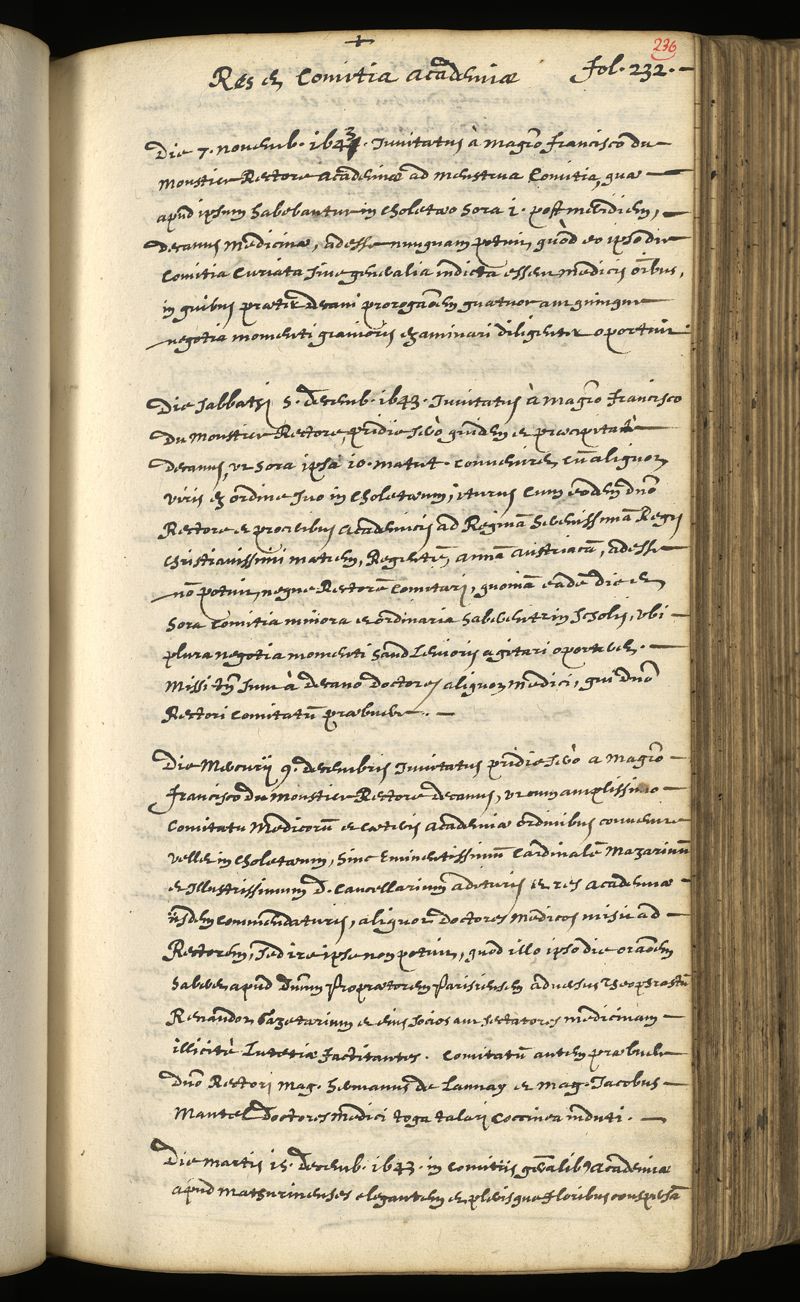 236
Res et Comitia Academiæ fol. 232.
Die 7. Novemb. 1643. Invitatus à magrõ francisco du
Monstier Rectore Academiæ ad menstrua Comitia, quæ
apud ipsum habebantur in Choletæo hora 1. post meridiem,
decanus medicinæ, adesse nunquam potuit, quòd eo ipso die
Comitia Curiata sive generalia indicta essent medicis oĩbus,
in quibus præter decani prorogaõem quatuor aut quinque
negotia momenti gravioris examinari diligenter oportuit
Die Sabbathi 5. decemb. 1643. Invitatus à magrõ francisco
Du Monstier Rectore, pridie serò quidem et præcipitatè
decanus, ut hora ipsa 10. matut. conveniret cũ aliquot
viris ex ordine suo in Choletæum, iturus cum eodem dnõ
Rectore et proceribus Academicis ad Reginã Serenissimã Regis
Christianissimi matrem, Regentẽ Annam Austriacã, adesse
nõ potuit, neque Rectorẽ Comitari, quoniã eadẽ die et
hora Comitia minora et ordinaria haberentur in scholis, ubi
plura negotia momenti haud levioris agitari oporteret.
Missi tñ sunt à decano doctores aliquot medici, qui dnõ
Rectori Comitatũ præbuere.
Die Mercurii 9. decembris Invitatus pridie serò a magrõ
francisco du Monstier Rectore decanus, ut cum amplissimo
Comitatu Medicorũ et cæteris Academiæ ordinibus convenire
vellet in Choletæum, hinc Eminentissimũ Cardinalẽ Mazarinũ
et Illustrissimum D. Cancellarium adituris et res Academiæ
iisdem commendaturis, aliquot doctores medicos misit ad
Rectorem, sed ire ipse non potuit, quòd illo ipso die oraõem
haberet apud Dnum Proprætorem Parisiensem adversus Theophrastũ
Renaudot Gazetarium et eius socios aut sectatores medicinam
illicitè Lutetiæ factitantes. Comitatũ autem præbuere
dnõ Rectori Mag. Hermanus de Launay et Mag. Jacobus
Mantel doctores medici toga talari coccinea induti.
Die martis 15. decemb. 1643. in comitiis gñalib9 Academiæ
apud Mathurinenses elegantem et plerisque floribus conspersã